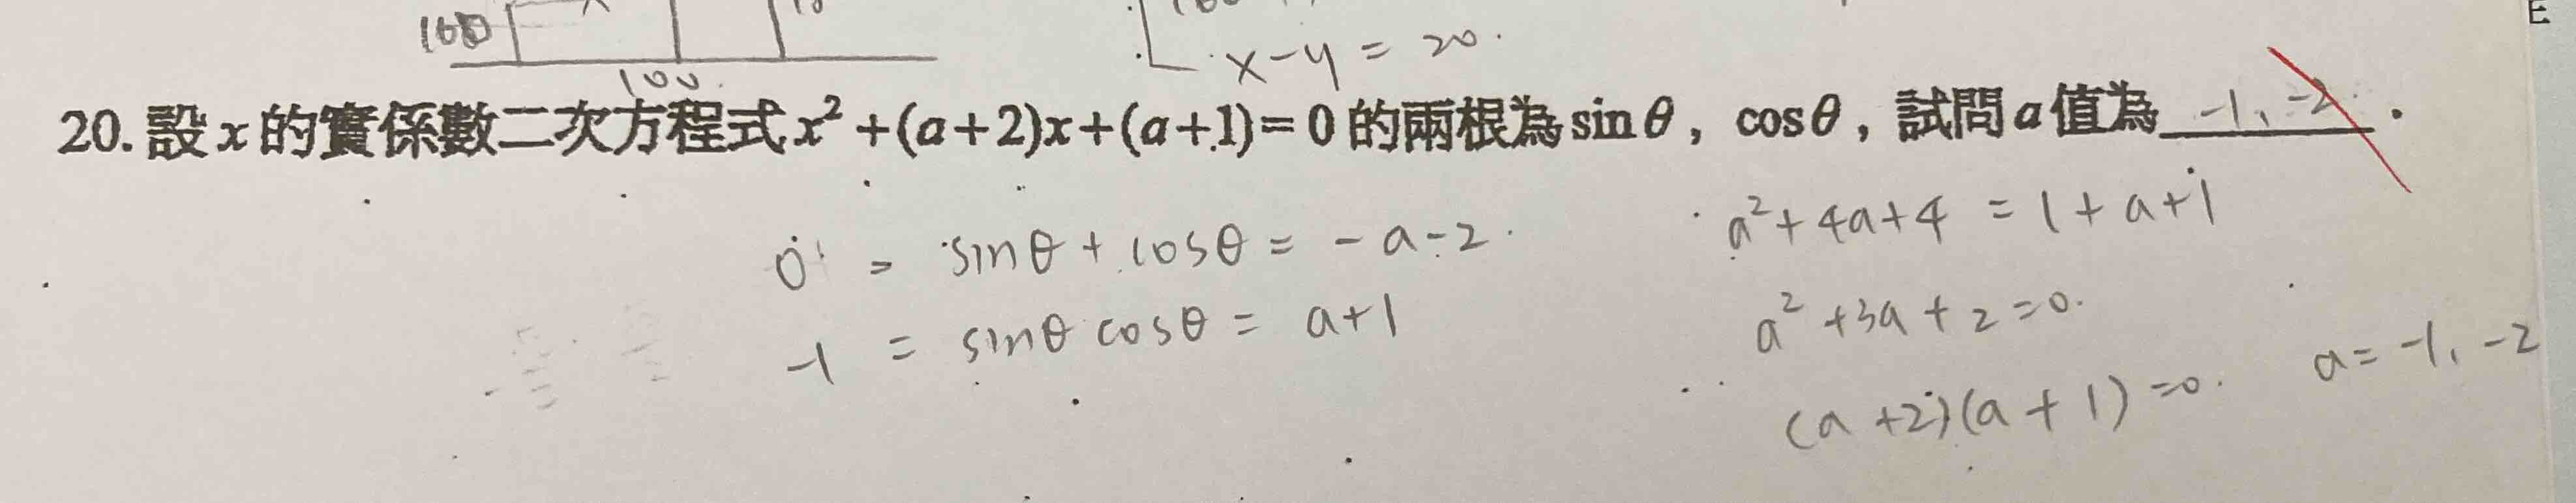 100
100
x-y = 20.
20. 設 x 的實係數二次方程式 x² +(a+2)x+(a+1)= 0 的兩根為 sin θ , cos θ , 試問 a 值為 -1、-2 .
0 = sinθ + cosθ = -a-2.
-1 = sinθ cosθ = a+1
a²+4a+4 = 1+a+1
a²+3a+2=0.
(a+2)(a+1)=0. a=-1、-2